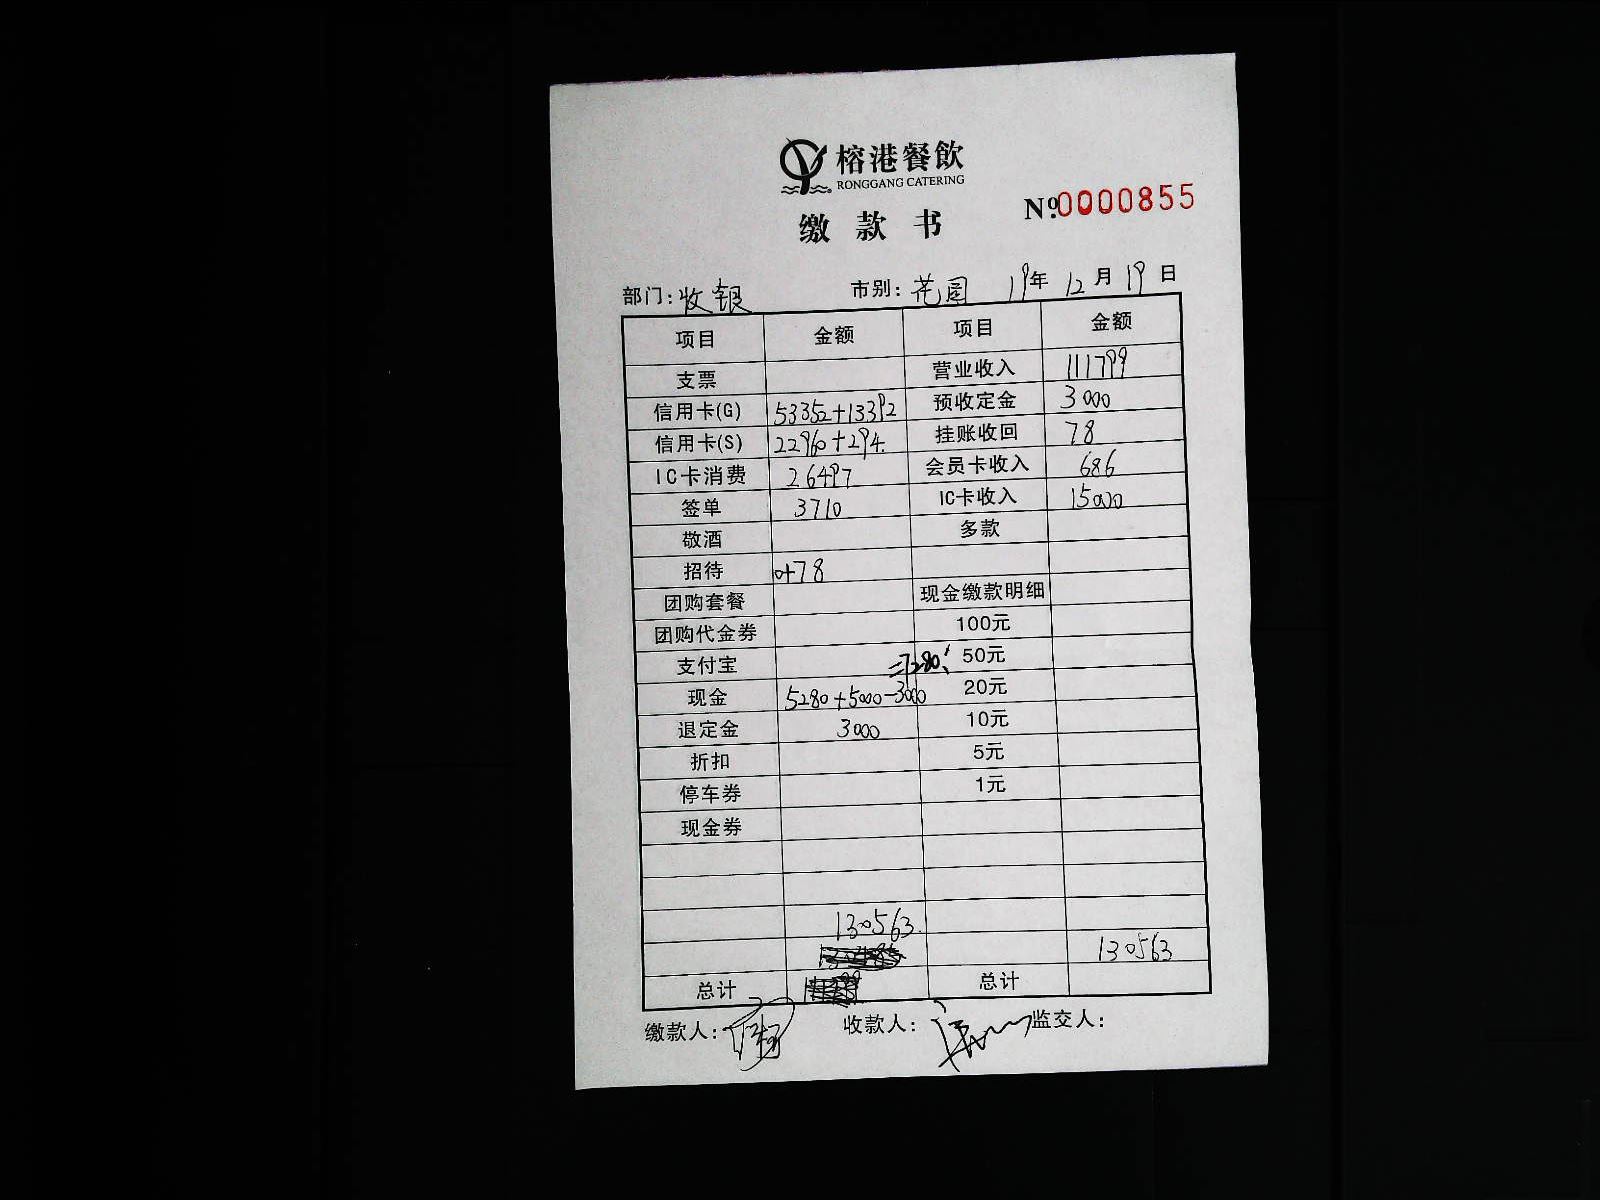 榕港餐飲
RONGGANG CATERING
缴款书 №0000855
部门:收银 市别:花园 19年12月19日
项目 金额 项目 金额
支票 营业收入 111799
信用卡(G) 53352+13392 预收定金 3000
信用卡(S) 22960+294. 挂账收回 78
IC卡消费 26497 会员卡收入 686
签单 3710 IC卡收入 15000
敬酒 多款
招待 0+78
团购套餐 现金缴款明细
团购代金券 100元
支付宝 =7280. 50元
现金 5280+5000-3000 20元
退定金 3000 10元
折扣 5元
停车券 1元
现金券
130563.
130563
总计 总计
缴款人: 收款人: 监交人: